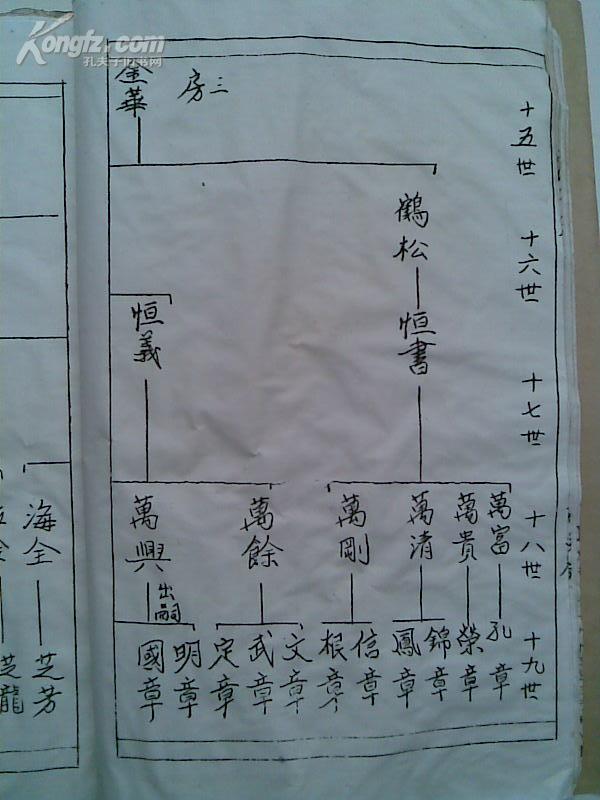 Kongfz.com
孔夫子旧书网
十五世
十六世
十七世
十八世
十九世
三房
金華
鶴松
恒書
恒義
萬富
萬貴
萬清
萬剛
萬餘
萬興
出嗣
孔章
榮章
錦章
鳳章
信章
根章
文章
武章
定章
明章
國章
海全
芝芳
芝龍